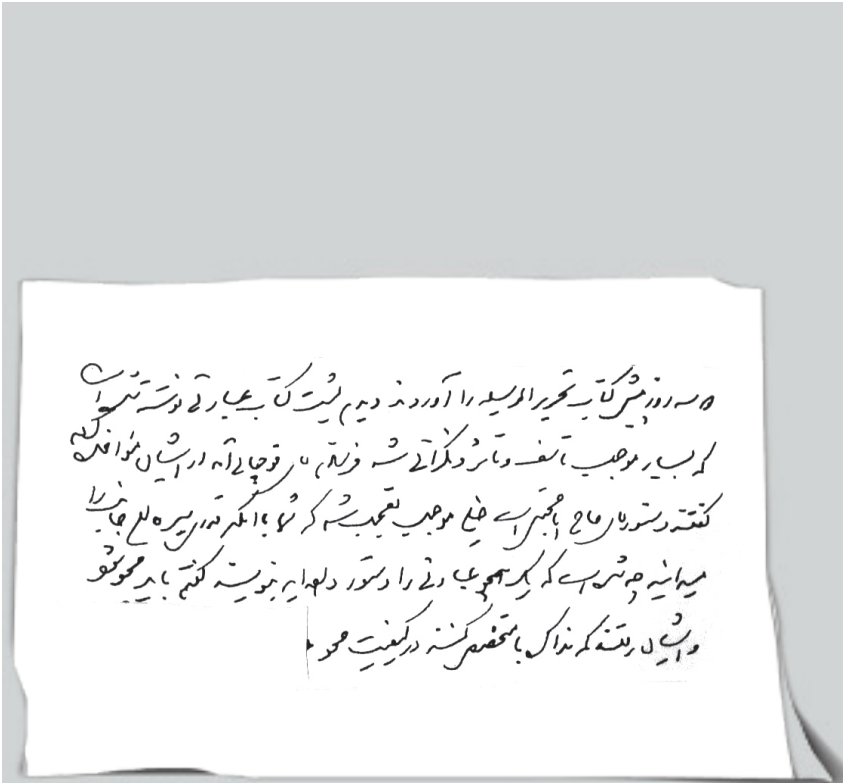 سه روز پیش کتاب تحریر الوسیله را آوردند دیدم پشت کتاب عبارتی نوشته شده است
که بسیار موجب تأسف و تأثر و نگرانی شد فرستادم آقای قوچانی آمد از ایشان مؤاخذه که
گفتند دستور آقای حاج آقا مجتبی است خیلی موجب تعجب شد که شما با آنکه قدری سیره اینجانب را
میدانید چه شده است که یک همچو عبارتی را دستور داده‌اید بنویسند گفتم باید محو شود
و ایشان رفتند که مذاکره با متخصص کنند در کیفیت محو